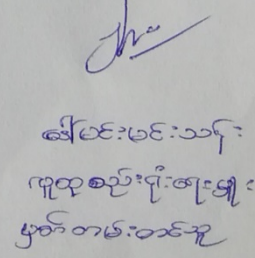 ဒေါ်မင်းမင်းသန်း
လူထုစည်းရုံးရေးမှူး
မှတ်တမ်းတင်သူ